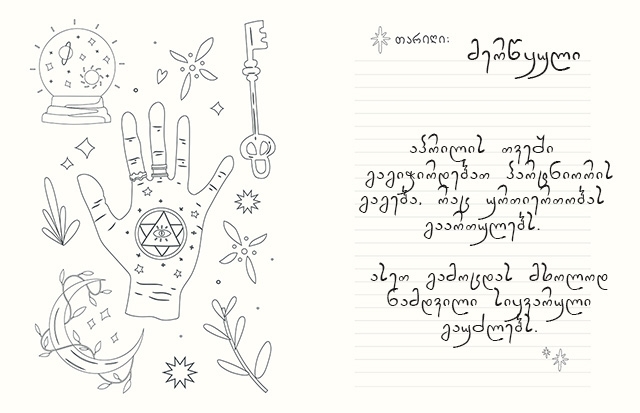 თარიღი: მერწყული
აპრილის თვეში
გაგიჭირდებათ პარტნიორის
გაგება, რაც ურთიერთობას
გაართულებს.
ასეთ გამოცდას მხოლოდ
ნამდვილი სიყვარული
გაუძლებს.